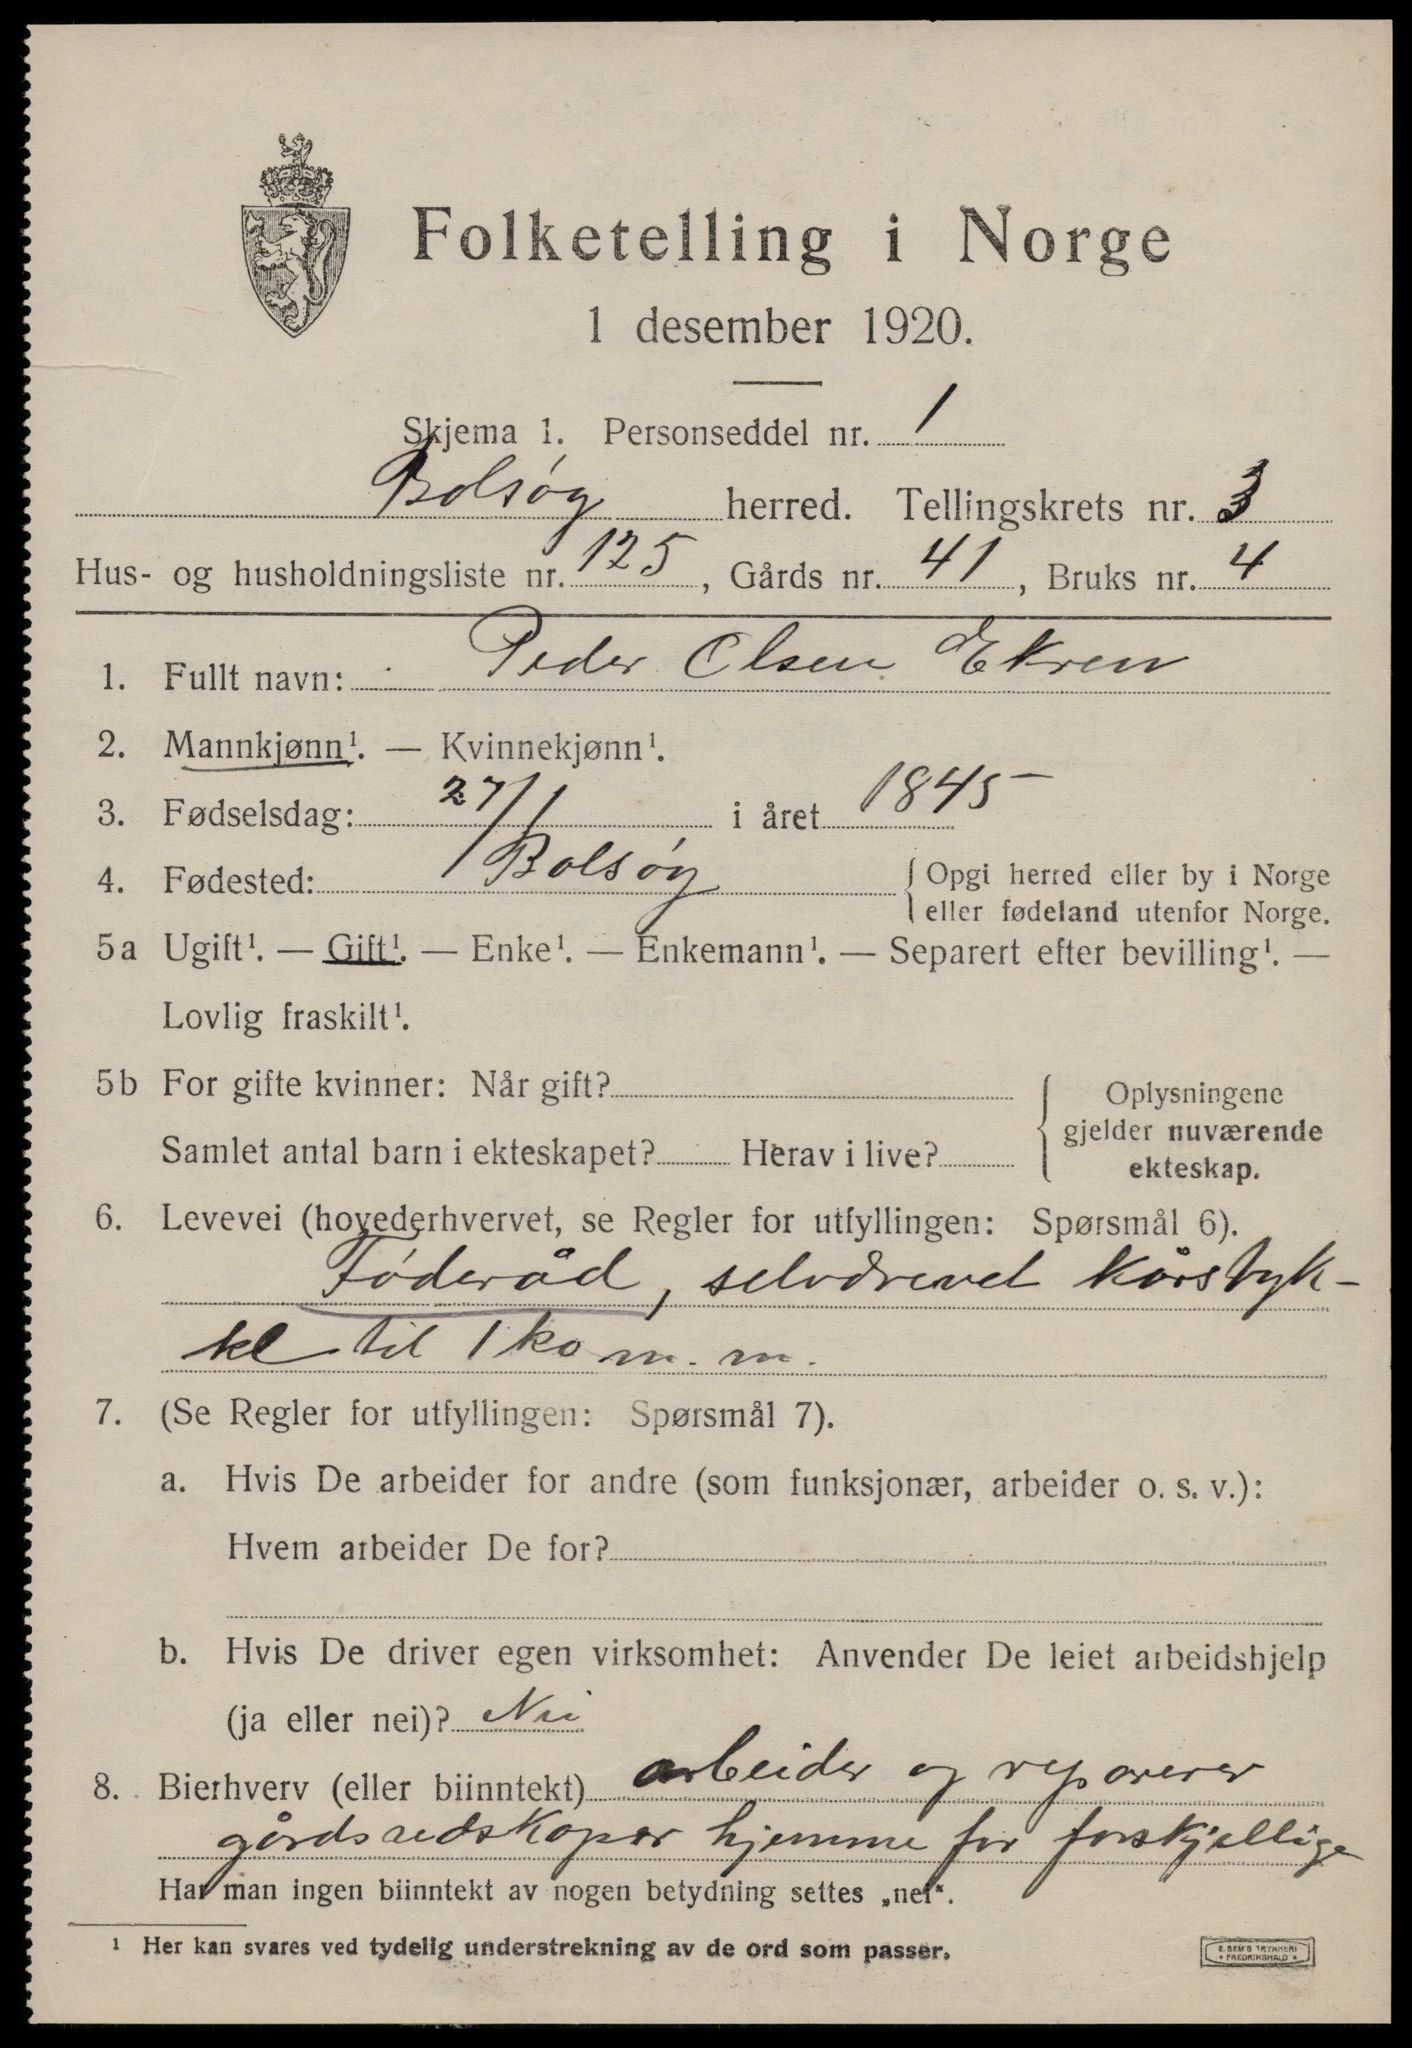 Folketelling i Norge
1 desember 1920.
Skjema 1. Personseddel nr. 1
Bolsøy herred. Tellingskrets nr. 3
Hus- og husholdningsliste nr. 125, Gårds nr. 41, Bruks nr. 4
1. Fullt navn: Peder Olsen Ekren
2. Mannkjønn¹. — Kvinnekjønn¹.
3. Fødselsdag: 27/1 i året 1845
4. Fødested: Bolsøy { Opgi herred eller by i Norge
eller fødeland utenfor Norge.
5a Ugift¹. — Gift¹. — Enke¹. — Enkemann¹. — Separert efter bevilling¹. —
Lovlig fraskilt¹.
5b For gifte kvinner: Når gift? { Oplysningene
gjelder nuværende
Samlet antal barn i ekteskapet? Herav i live?
ekteskap.
6. Levevei (hovederhvervet, se Regler for utfyllingen: Spørsmål 6).
Føderåd, selvdrevet kårstyk-
ke til 1 ko m. m.
7. (Se Regler for utfyllingen: Spørsmål 7).
a. Hvis De arbeider for andre (som funksjonær, arbeider o. s. v.):
Hvem arbeider De for?
b. Hvis De driver egen virksomhet: Anvender De leiet arbeidshjelp
(ja eller nei)? Nei
8. Bierhverv (eller biinntekt) arbeider og reparerer
gårdsredskaper hjemme for forskjellige
Har man ingen biinntekt av nogen betydning settes „nei“.
¹ Her kan svares ved tydelig understrekning av de ord som passer.
E. SEM'S TRYKKERI
• FREDRIKSHALD •